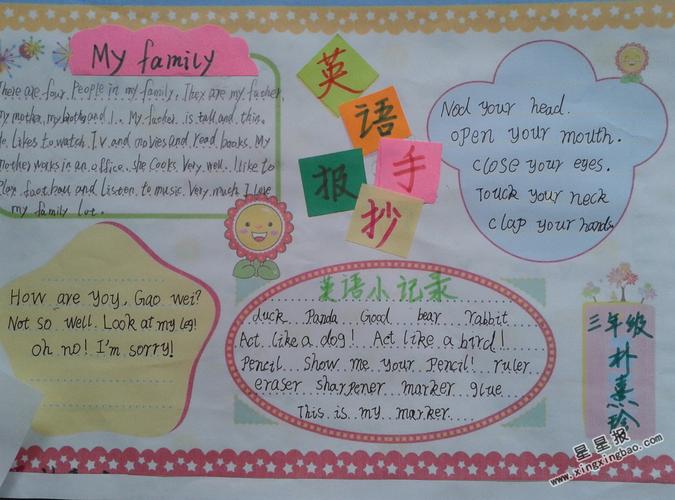 My family
There are four People in my family. They are my father.
My mother, my brother and I. My father is tall and thin.
He Likes to watch T.V and movies and read books. My
mother works in an office. she cooks Very well. I like to
Play football and Listen to music Very much I Love
my family Lot.
英
语
手
抄
报
Nod your head.
open your mouth.
close your eyes.
Touch your neck
clap your hands
How are you, Gao wei?
Not so well. Look at my leg!
oh no! I'm sorry!
英语小记录
duck Panda Good bear rabbit
Act like a dog! Act like a bird!
Pencil show me your Pencil! ruler
eraser sharpener marker glue
This is my marker
三年级
朴
星星报
www.xingxingbao.com